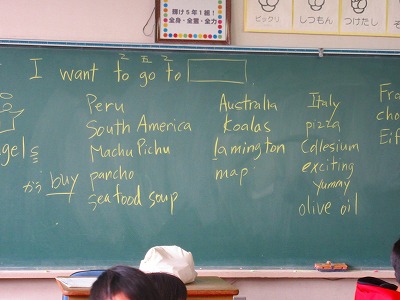 輝け5年1組!
全身・全霊・全力
ピッタリ
しつもん
つけたし
I want to go to
Peru
South America
Machu Pichu
pancho
seafood soup
Australia
Koalas
lamington
map
Italy
pizza
Colesium
exciting
yummy
olive oil
Fra
cho
Eif
ngels
がう buy